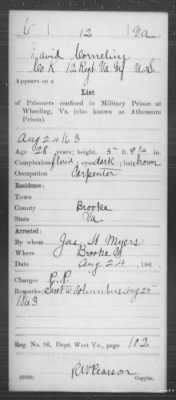 C | 12 | Va
David Cornelius
Co K 12 Regt Va Mil U.S.
Appears on a
List
of Prisoners confined in Military Prison at
Wheeling, Va. (also known as Athenæum
Prison).
Aug 24 63
Age 28 years; height, 5 ft. 9 3/4 in.
Complexion florid, eyes dark, hair brown
Occupation Carpenter
Residence:
Town
County Brooke
State Va
Arrested:
By whom Jas. H. Myers
Where Brooke Co
Date Aug 24, 186
Charges
Remarks: Sent to Columbus Aug 25
1863
Reg. No. 96, Dept. West Va., page 182
R W Pearson
Copyist.